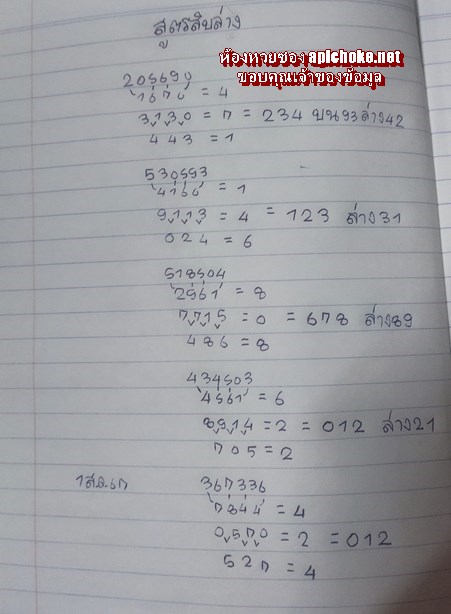 สูตรสิบล่าง
ห้องหวยซอง apichoke.net
ขอบคุณเจ้าของข้อมูล
205690
1670 = 4
3130 = 7 = 234 บน93ล่าง42
443 = 1
530593
4160 = 1
9113 = 4 = 123 ล่าง31
024 = 6
518504
2561 = 8
7715 = 0 = 678 ล่าง89
486 = 8
434503
4561 = 6
8914 = 2 = 012 ล่าง21
705 = 2
1ส.ค.67 367336
7844 = 4
0570 = 2 = 012
527 = 4